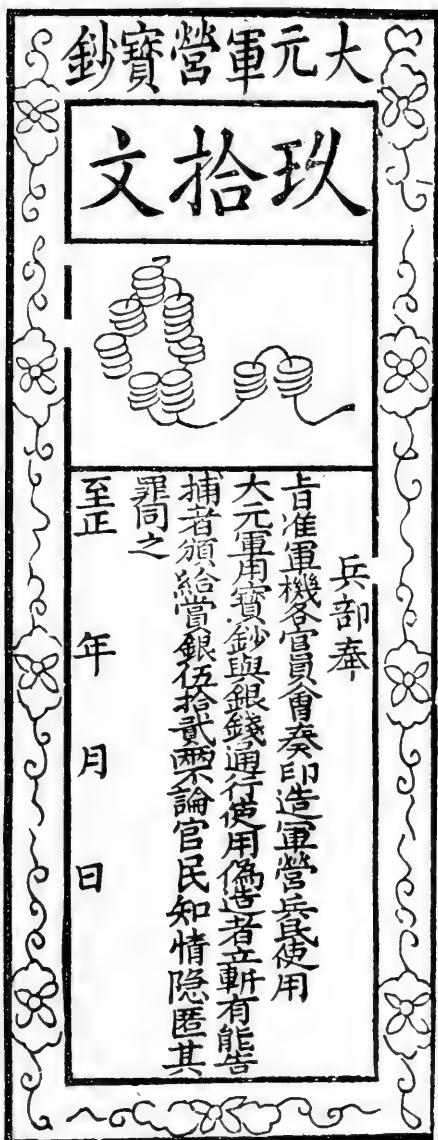 大元軍營寳鈔
玖拾文
兵部奉
旨准軍機各官員會奏印造軍營兵民使用
大元軍用寳鈔與銀錢通行使用偽造者立斬有能告
捕者頒給賞銀伍拾貳兩不論官民知情隐匿其
罪同之
至正 年 月 日